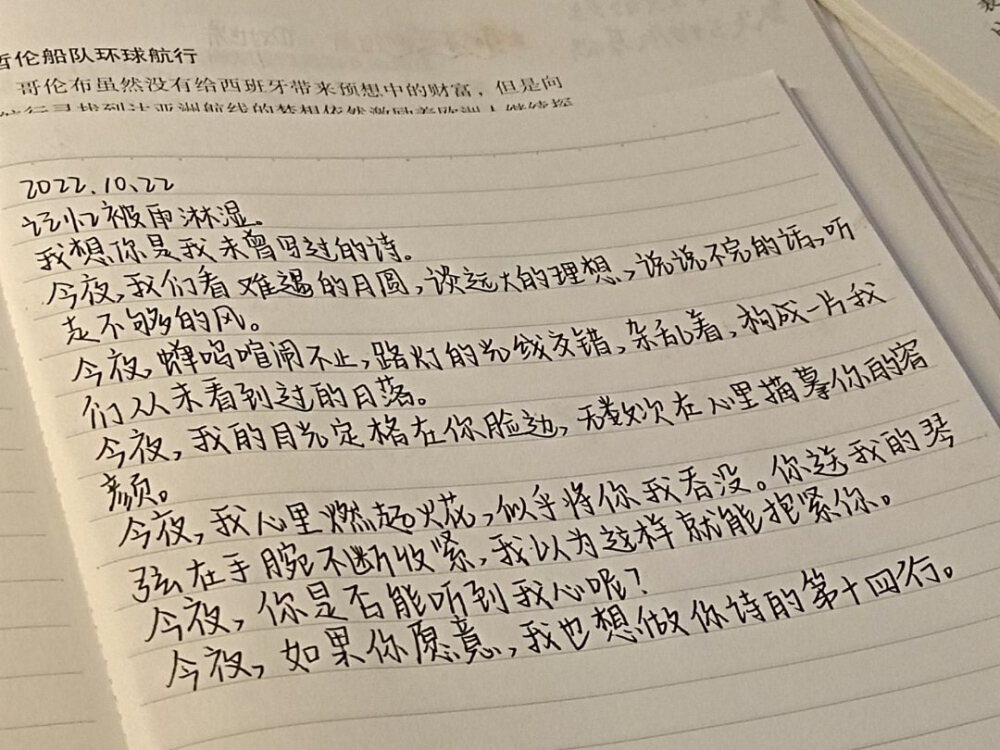 哲伦船队环球航行
哥伦布虽然没有给西班牙带来预想中的财富，但是向
2022.10.22
记忆被雨淋湿.
我想你是我未曾写过的诗。
今夜,我们看难遇的月圆,谈远大的理想,说说不完的话,听
走不够的风。
今夜,蝉鸣喧闹不止,路灯的光线交错,杂乱着,构成一片我
们从未看到过的日落。
今夜,我的目光定格在你脸边,无数次在心里描摹你的容
颜。
今夜,我心里燃起火花,似乎将你我吞没。你送我的琴
弦在手腕不断收紧,我以为这样就能抱紧你。
今夜,你是否能听到我心呢?
今夜,如果你愿意,我也想做你诗的第十四行。